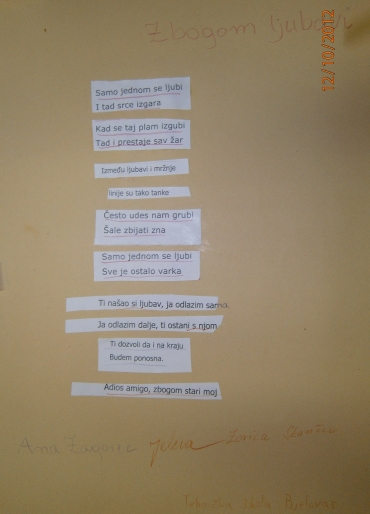 Zbogom ljubavi
12/10/2012
Samo jednom se ljubi
I tad srce izgara
Kad se taj plam izgubi
Tad i prestaje sav žar
Između ljubavi i mržnje
linije su tako tanke
Često udes nam grubi
Šale zbijati zna
Samo jednom se ljubi
Sve je ostalo varka
Ti našao si ljubav, ja odlazim sama.
Ja odlazim dalje, ti ostani s njom
Ti dozvoli da i na kraju
Budem ponosna.
Adios amigo, zbogom stari moj
Ana Jelena Zorica
škola Bjelovar